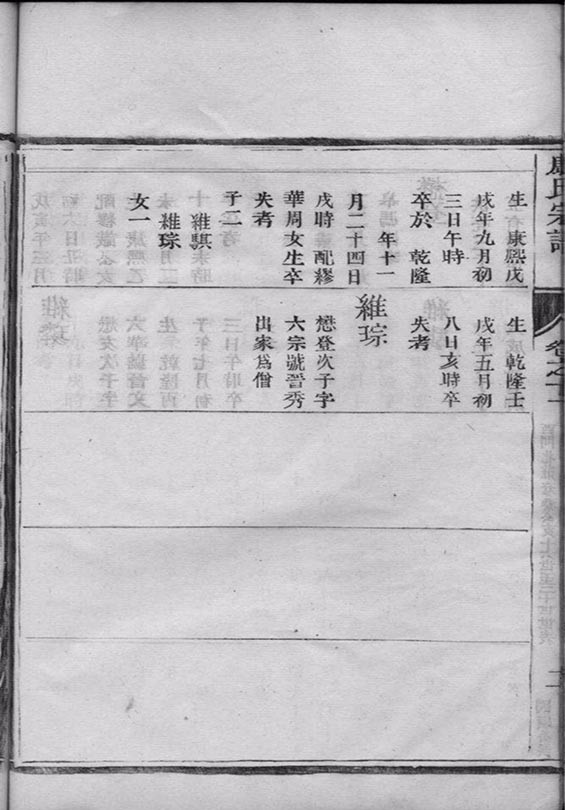 氏宗譜
卷之十二
生 康熙戊
戌年九月初
三日午時
卒於 乾隆
年十一
月二十四日
戌時配繆
華周女生卒
失考
子二
維騏
維琮
女一
生 乾隆壬
戌年五月初
八日亥時卒
失考
維琮
懋登次子字
六宗號晉秀
出家爲僧